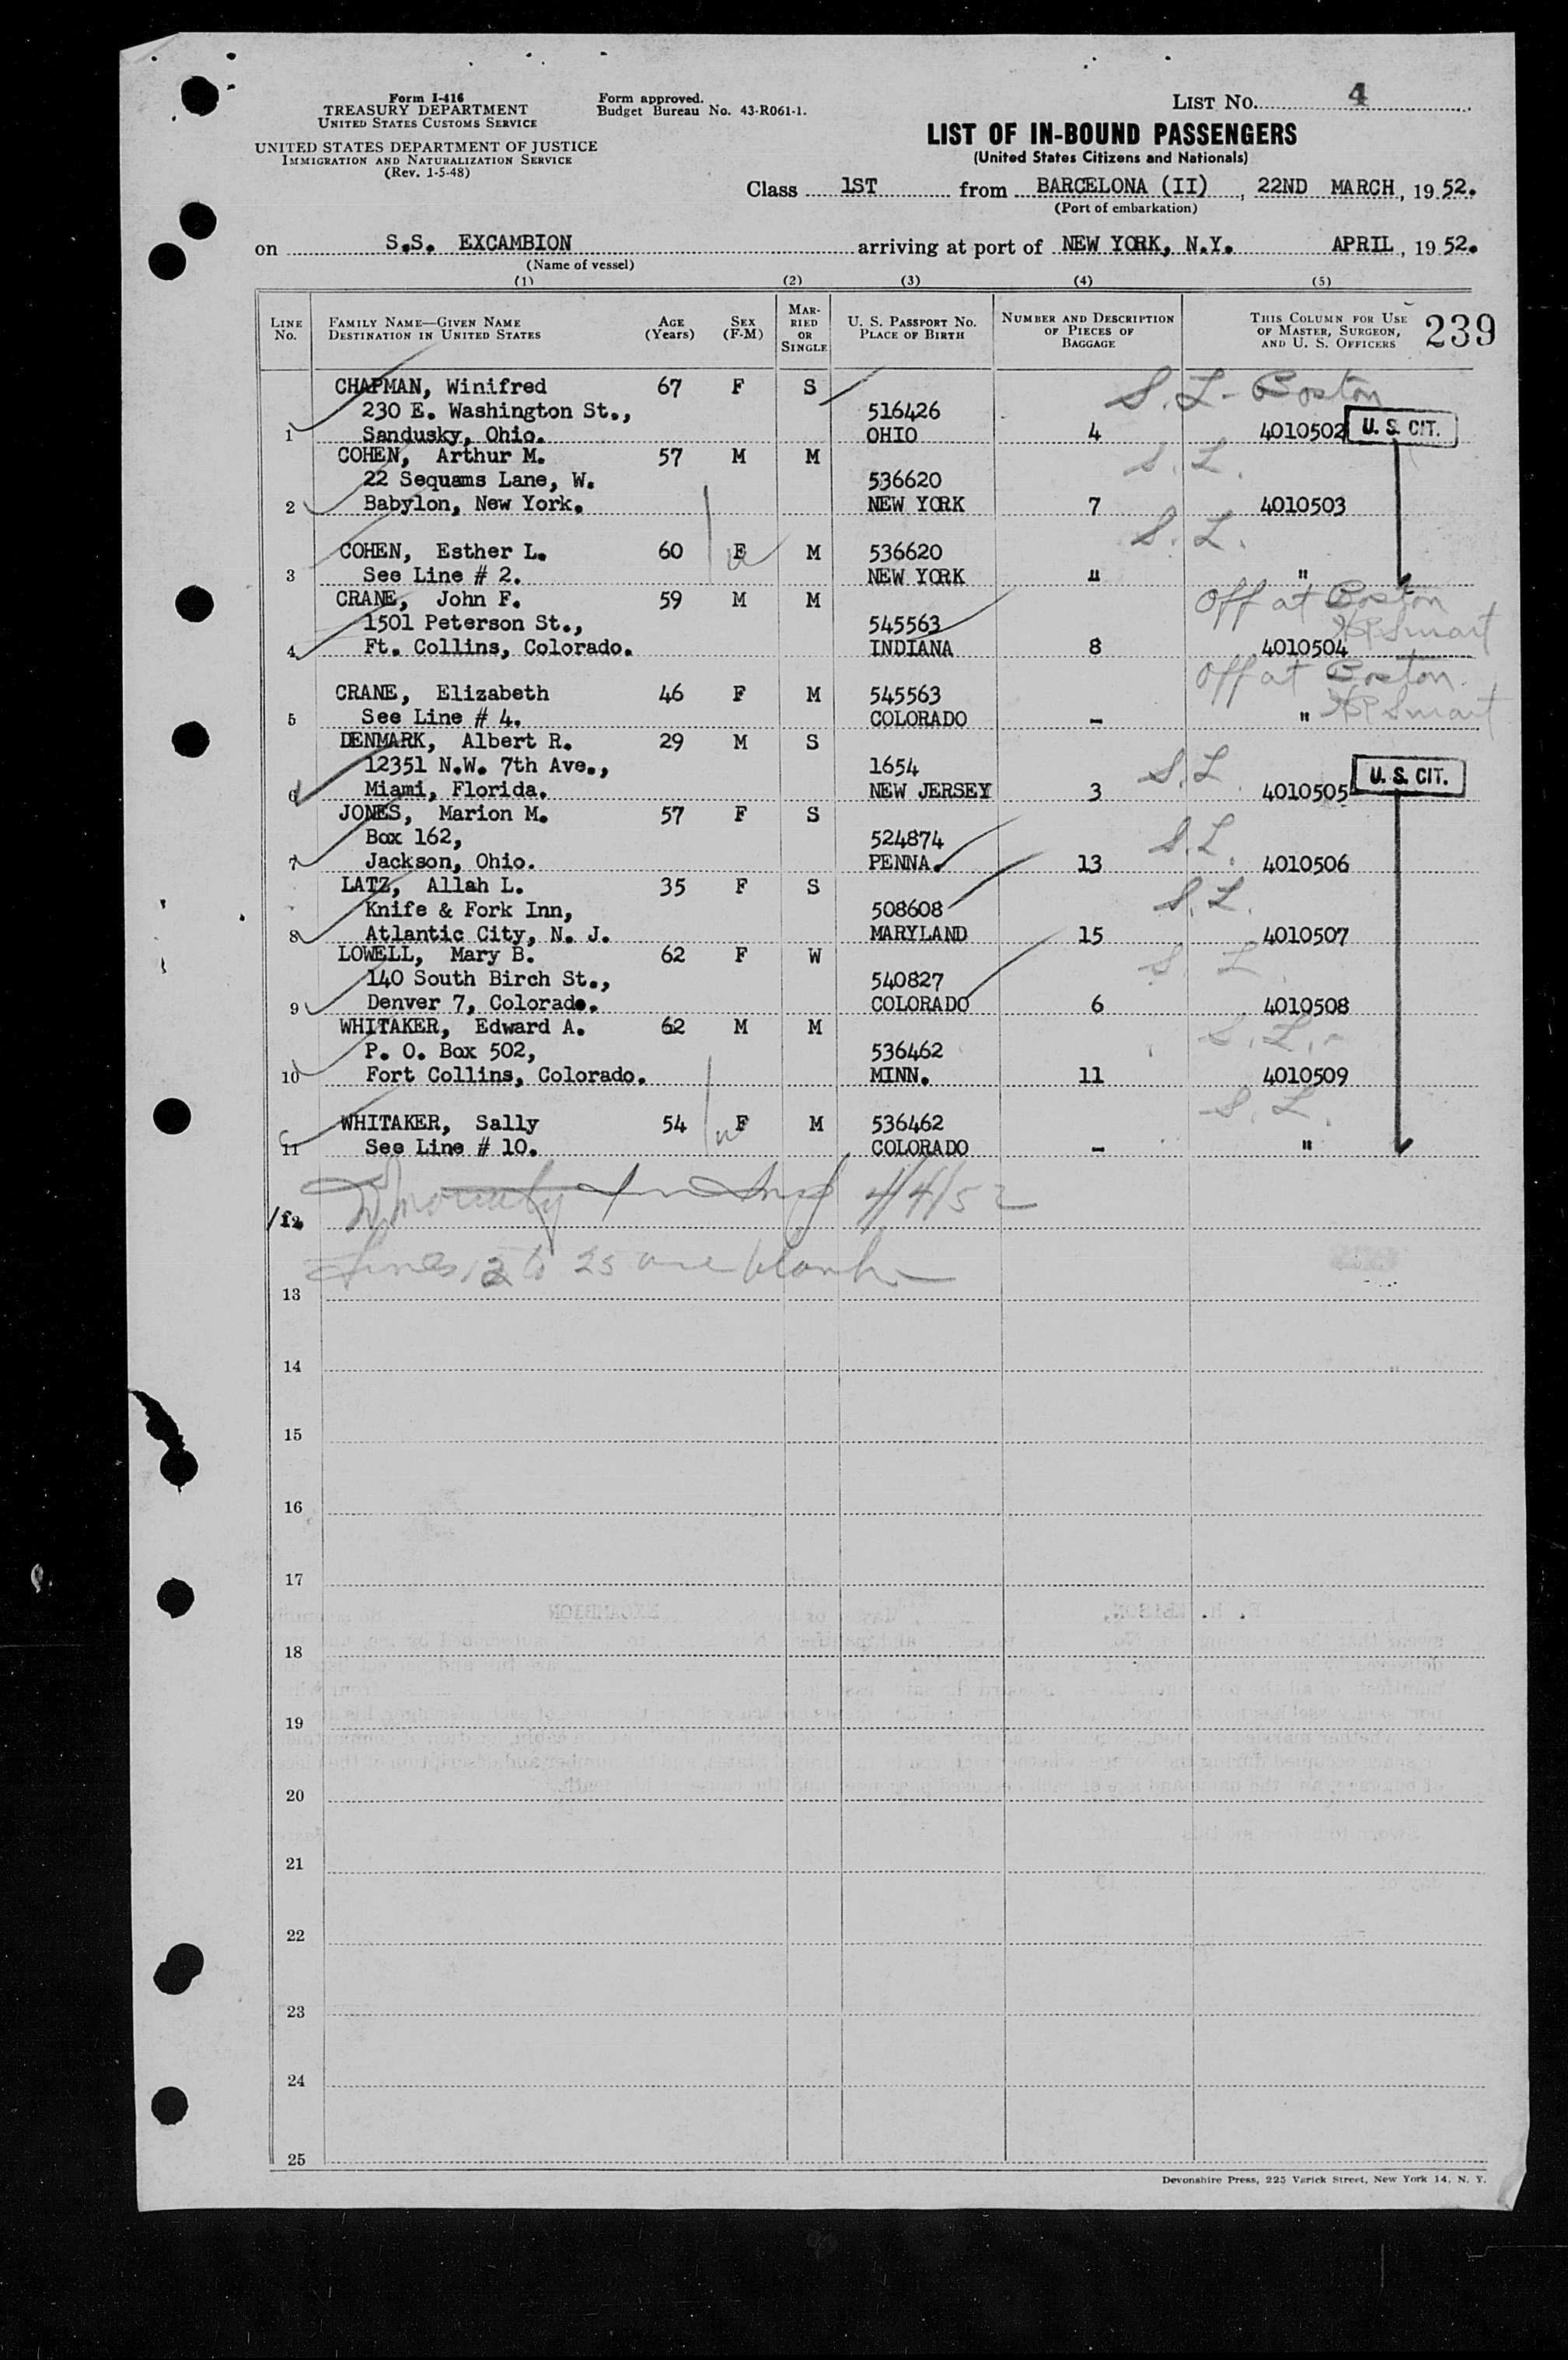 Form I-416
TREASURY DEPARTMENT
UNITED STATES CUSTOMS SERVICE
UNITED STATES DEPARTMENT OF JUSTICE
IMMIGRATION AND NATURALIZATION SERVICE
(Rev. 1-5-48)
Form approved.
Budget Bureau No. 43-R061-1.
LIST NO. 4
LIST OF IN-BOUND PASSENGERS
(United States Citizens and Nationals)
Class 1ST from BARCELONA (II), 22ND MARCH, 19 52.
(Port of embarkation)
on S.S. EXCAMBION arriving at port of NEW YORK, N.Y. APRIL, 19 52.
(Name of vessel)
(1) (2) (3) (4) (5)
LINE No. FAMILY NAME—GIVEN NAME DESTINATION IN UNITED STATES AGE (Years) SEX (F-M) MARRIED OR SINGLE U. S. PASSPORT NO. PLACE OF BIRTH NUMBER AND DESCRIPTION OF PIECES OF BAGGAGE THIS COLUMN FOR USE OF MASTER, SURGEON, AND U. S. OFFICERS 239
CHAPMAN, Winifred 67 F S S.L - Boston
230 E. Washington St., 516426
1 Sandusky, Ohio. OHIO 4 4010502 U. S. CIT.
COHEN, Arthur M. 57 M M S.L.
22 Sequams Lane, W. 536620
2 Babylon, New York. NEW YORK 7 4010503
S.L.
COHEN, Esther L. 60 F M 536620
3 See Line # 2. NEW YORK " "
CRANE, John F. 59 M M Off at Boston
1501 Peterson St., 545563 HP Smart
4 Ft. Collins, Colorado. INDIANA 8 4010504
Off at Boston.
CRANE, Elizabeth 46 F M 545563 HP Smart
5 See Line # 4. COLORADO - "
DENMARK, Albert R. 29 M S
12351 N.W. 7th Ave., 1654 S.L U. S. CIT.
6 Miami, Florida. NEW JERSEY 3 4010505
JONES, Marion M. 57 F S
Box 162, 524874 S.L.
7 Jackson, Ohio. PENNA. 13 4010506
LATZ, Allah L. 35 F S S.L.
Knife & Fork Inn, 508608
8 Atlantic City, N. J. MARYLAND 15 4010507
LOWELL, Mary B. 62 F W S L
140 South Birch St., 540827
9 Denver 7, Colorado. COLORADO 6 4010508
WHITAKER, Edward A. 62 M M S.L.-
P. O. Box 502, 536462
10 Fort Collins, Colorado. MINN. 11 4010509
S.L.
WHITAKER, Sally 54 F M 536462
11 See Line # 10. COLORADO - "
4/4/52
12
Lines 12 to 25 are blank
13
14
15
16
17
18
19
20
21
22
23
24
25
Devonshire Press, 225 Varick Street, New York 14, N. Y.